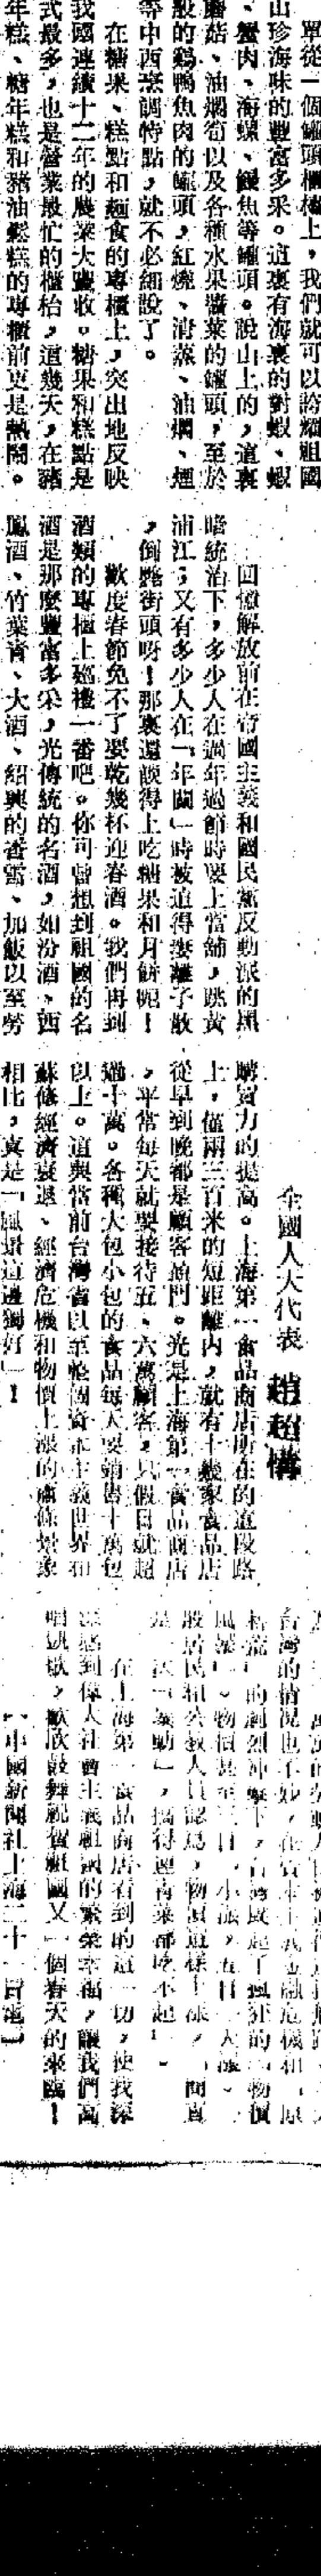 單從一個罐頭櫃檯上，我們就可以誇耀祖國
山珍海味的豐富多采。這裏有海裏的對蝦、蝦
、蟹肉、海螺、鮑魚等罐頭。說山上的，這裏
蘑菇、油燜筍以及各種水果醬菜的罐頭，至於
般的鷄鴨魚肉的罐頭，紅燒、清蒸、油燜、煙
等中西烹調特點，就不必細說了。
在糖果、糕點和麵食的專櫃上，突出地反映
我國連續十二年的農業大豐收。糖果和糕點是
式最多，也是營業最忙的櫃枱，這幾天，在豬
年糕、糖年糕和豬油鬆糕的專櫃前更是熱鬧。
回憶解放前在帝國主義和國民黨反動派的黑
暗統治下，多少人在過年過節時要上當舖，跳黃
浦江；又有多少人在「年關」時被迫得妻離子散
，倒斃街頭呀！那裏還談得上吃糖果和月餅呢！
歡度春節免不了要乾幾杯迎春酒。我們再到
酒類的專櫃上巡禮一番吧。你可曾想到祖國的名
酒是那麼豐富多采，光傳統的名酒，如汾酒、西
鳳酒、竹葉青、大酒、紹興的香雪、加飯以至勞
全國人大代表 趙超構
購買力的提高。上海第一食品商店所在的這段路
上，僅兩三百米的短距離內，就有十幾家食品店
從早到晚都是顧客盈門。光是上海第一食品商店
，平常每天就要接待五、六萬顧客，只假日就超
過十萬。各種大包小包的食品每天要銷售十萬包
以上。這與當前台灣省以至整個資本主義世界和
蘇修經濟衰退、經濟危機和物價上漲的蕭條景象
相比，真是「風景這邊獨好」！
台灣的情況也不妙，在資本主義金融危機和「原
的劇烈沖擊下，台灣展起了瘋狂的「物價
風暴」。物價甚至三日一小漲，五日一大漲。
般居民和公教人員認為，物價這樣上漲，「簡直
是一次『暴動』，搞得連青菜都吃不起」。
在上海第一食品商店看到的這一切，使我深
深感到偉大社會主義祖國的繁榮幸福，讓我們高
唱凱歌，歡欣鼓舞祝賀祖國又一個春天的來臨！
【中國新聞社上海二十一日電】